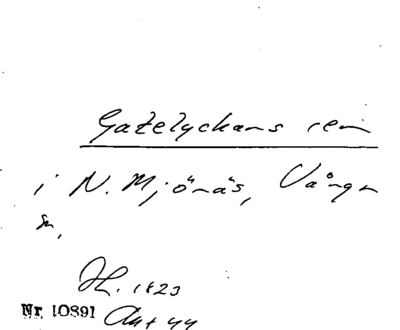 Gatelyckans ren
i N. Mjönäs, Vånga
sn.
Hl. 1823
Nr 10891 Akt 44